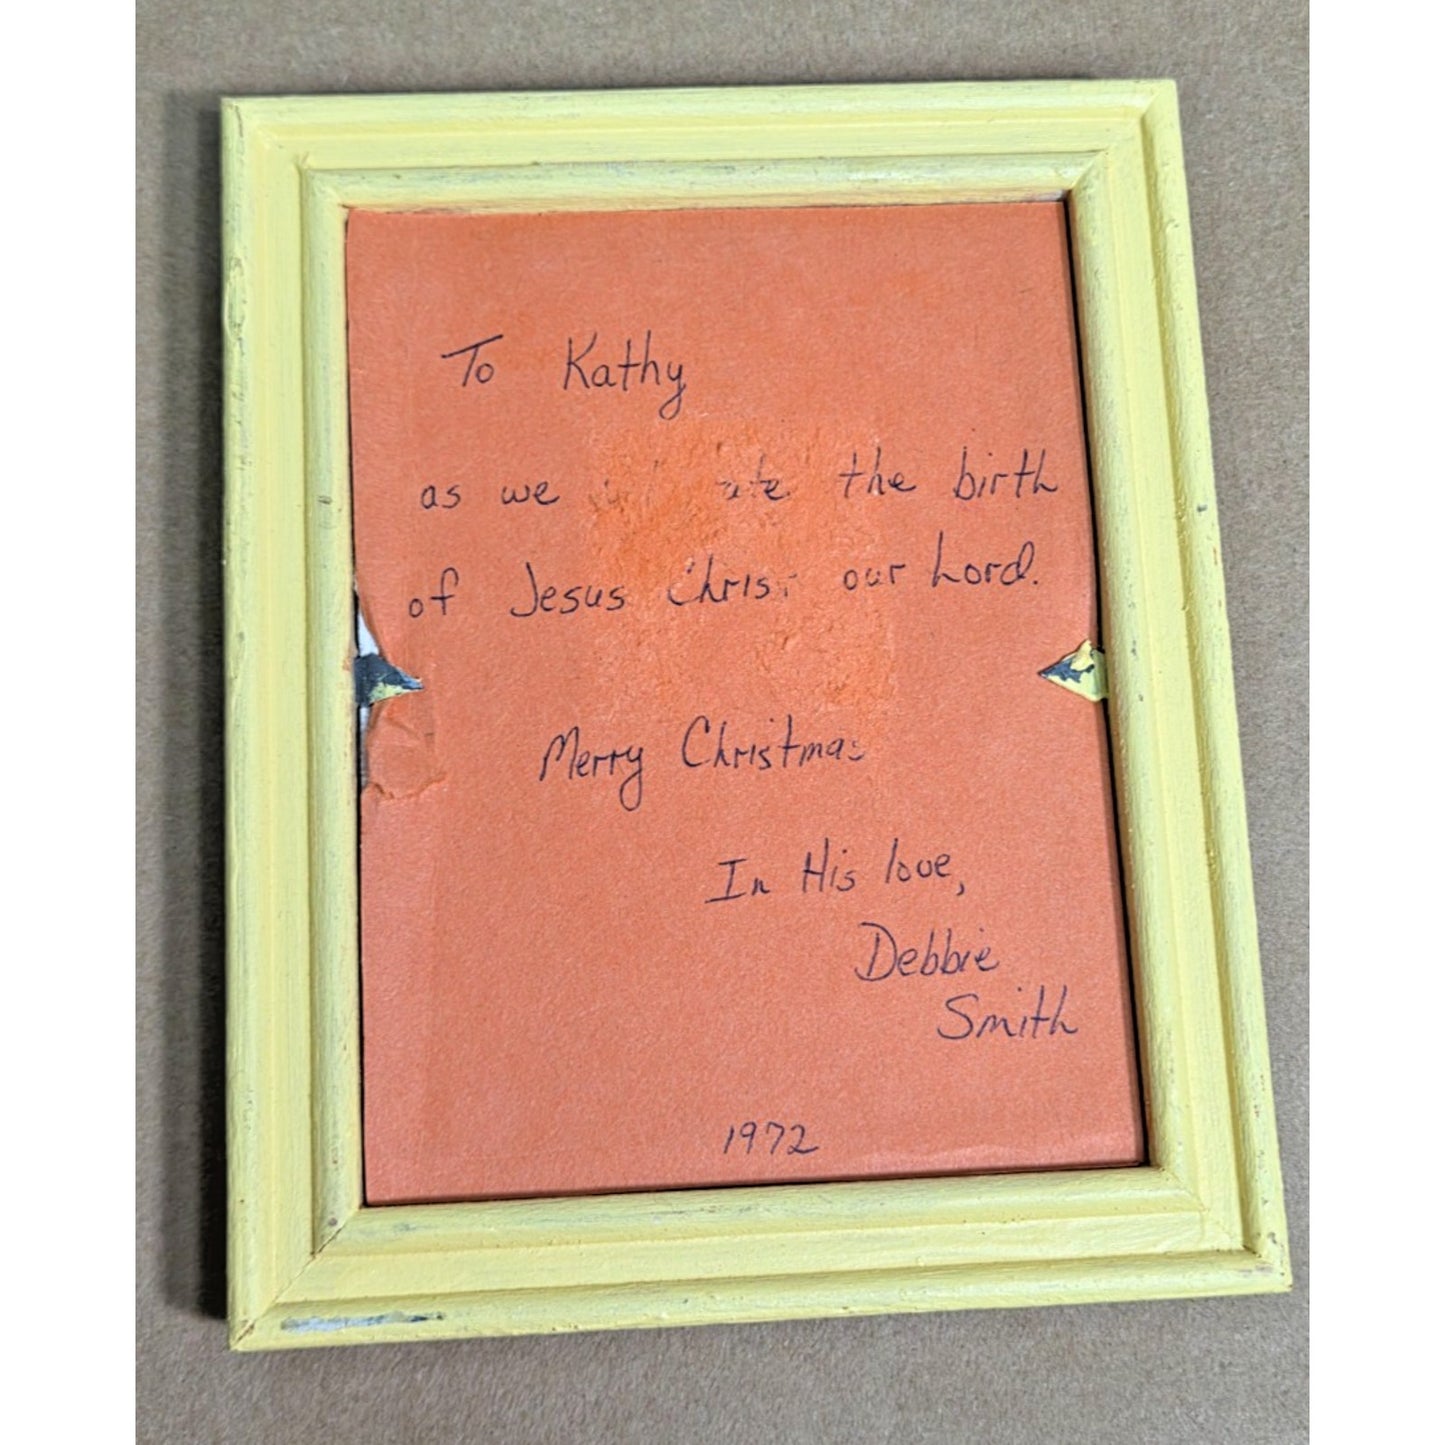 To Kathy
as we the birth
of Jesus Christ our Lord.
Merry Christmas
In His love,
Debbie
Smith
1972